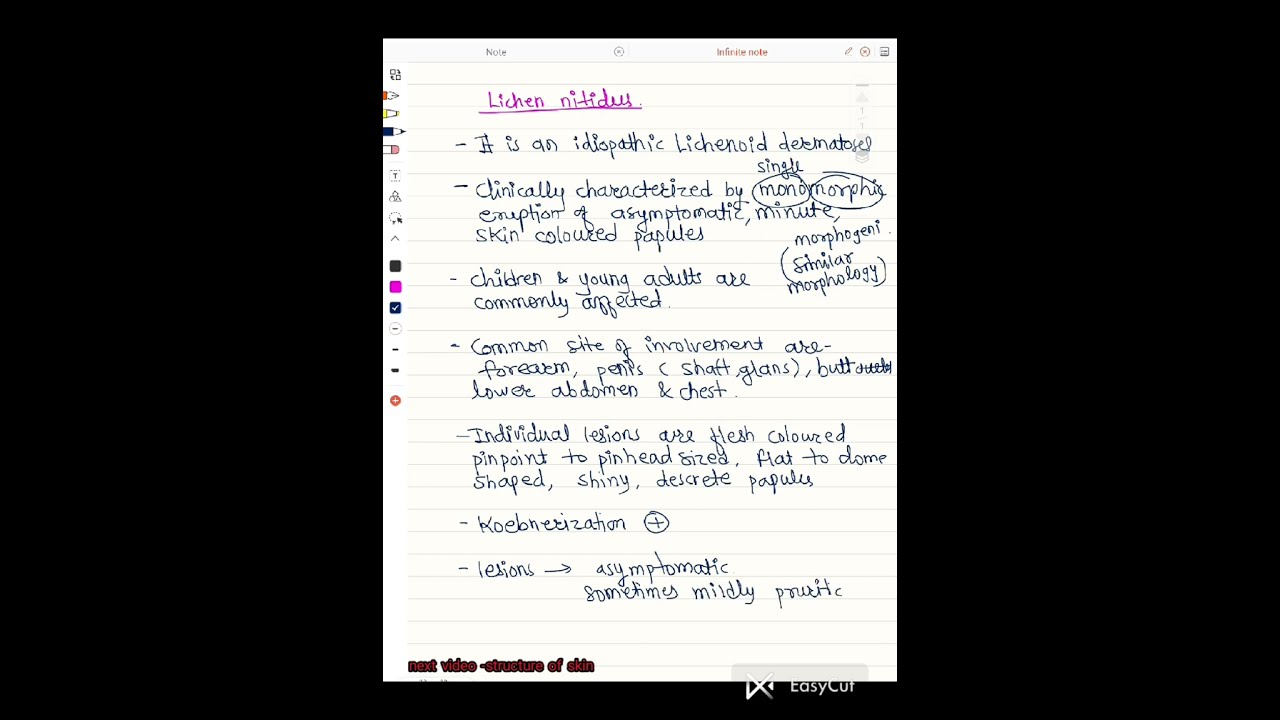 Note
Infinite note
Lichen nitidus.
- It is an idiopathic Lichenoid dermatoses
single
- Clinically characterized by monomorphic
eruption of asymptomatic, minute,
skin coloured papules
morphogeni.
(similar
morphology)
- children & young adults are
commonly affected.
- Common site of involvement are-
forearm, penis (shaft, glans), buttocks
lower abdomen & chest.
- Individual lesions are flesh coloured
pinpoint to pinhead sized, flat to dome
shaped, shiny, descrete papules
- Koebnerization +
- lesions → asymptomatic
sometimes mildly pruritc
next video -structure of skin
EasyCut